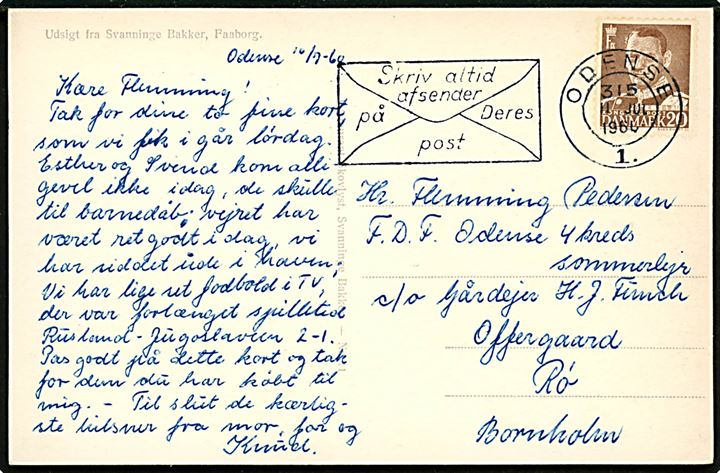 Udsigt fra Svanninge Bakker, Faaborg.
Odense 10/7-60
Kære Flemming!
Tak for dine to fine kort,
som vi fik i går lørdag.
Esther og Svend kom alli
gevel ikke idag, de skulle
til barnedåb; vejret har
været ret godt i dag, vi
har siddet ude i haven.
Vi har lige set fodbold i TV,
der var forlænget spilletid
Rusland-Jugoslavien 2-1.
Pas godt på dette kort og tak
for dem du har købt til
mig. - Til slut de kærlig-
ste hilsner fra mor, far og
Knud.
Svanninge Bakker
Skriv altid
afsender
på Deres
post
ODENSE
315
1960
1.
DANMARK 20
Hr. Flemming Pedersen
F.D.F. Odense 4 kreds
sommerlejr
c/o Gårdejer H. J. Finch
Offergaard
Rø
Bornholm